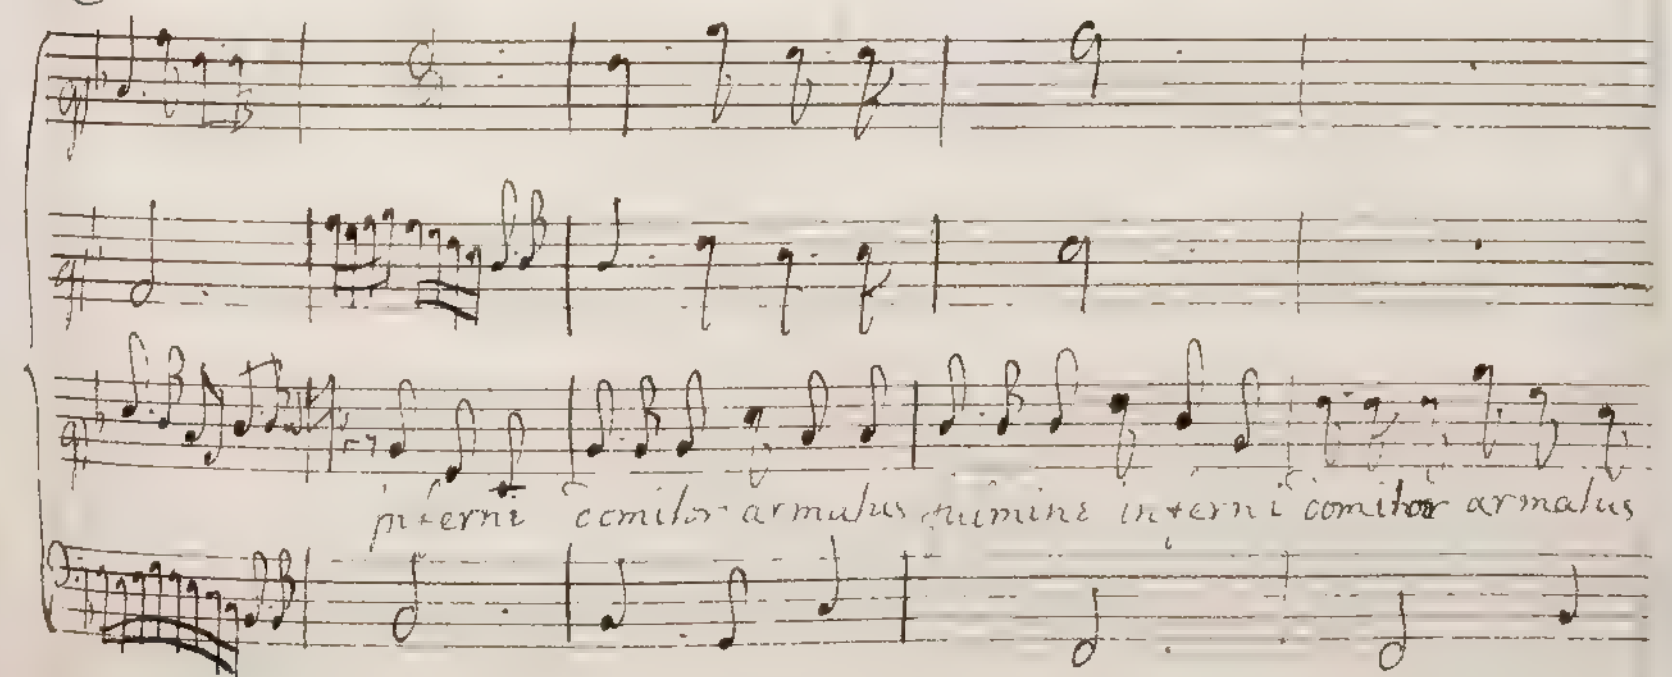 inferni comitor armatus numine inferni comitor armatus